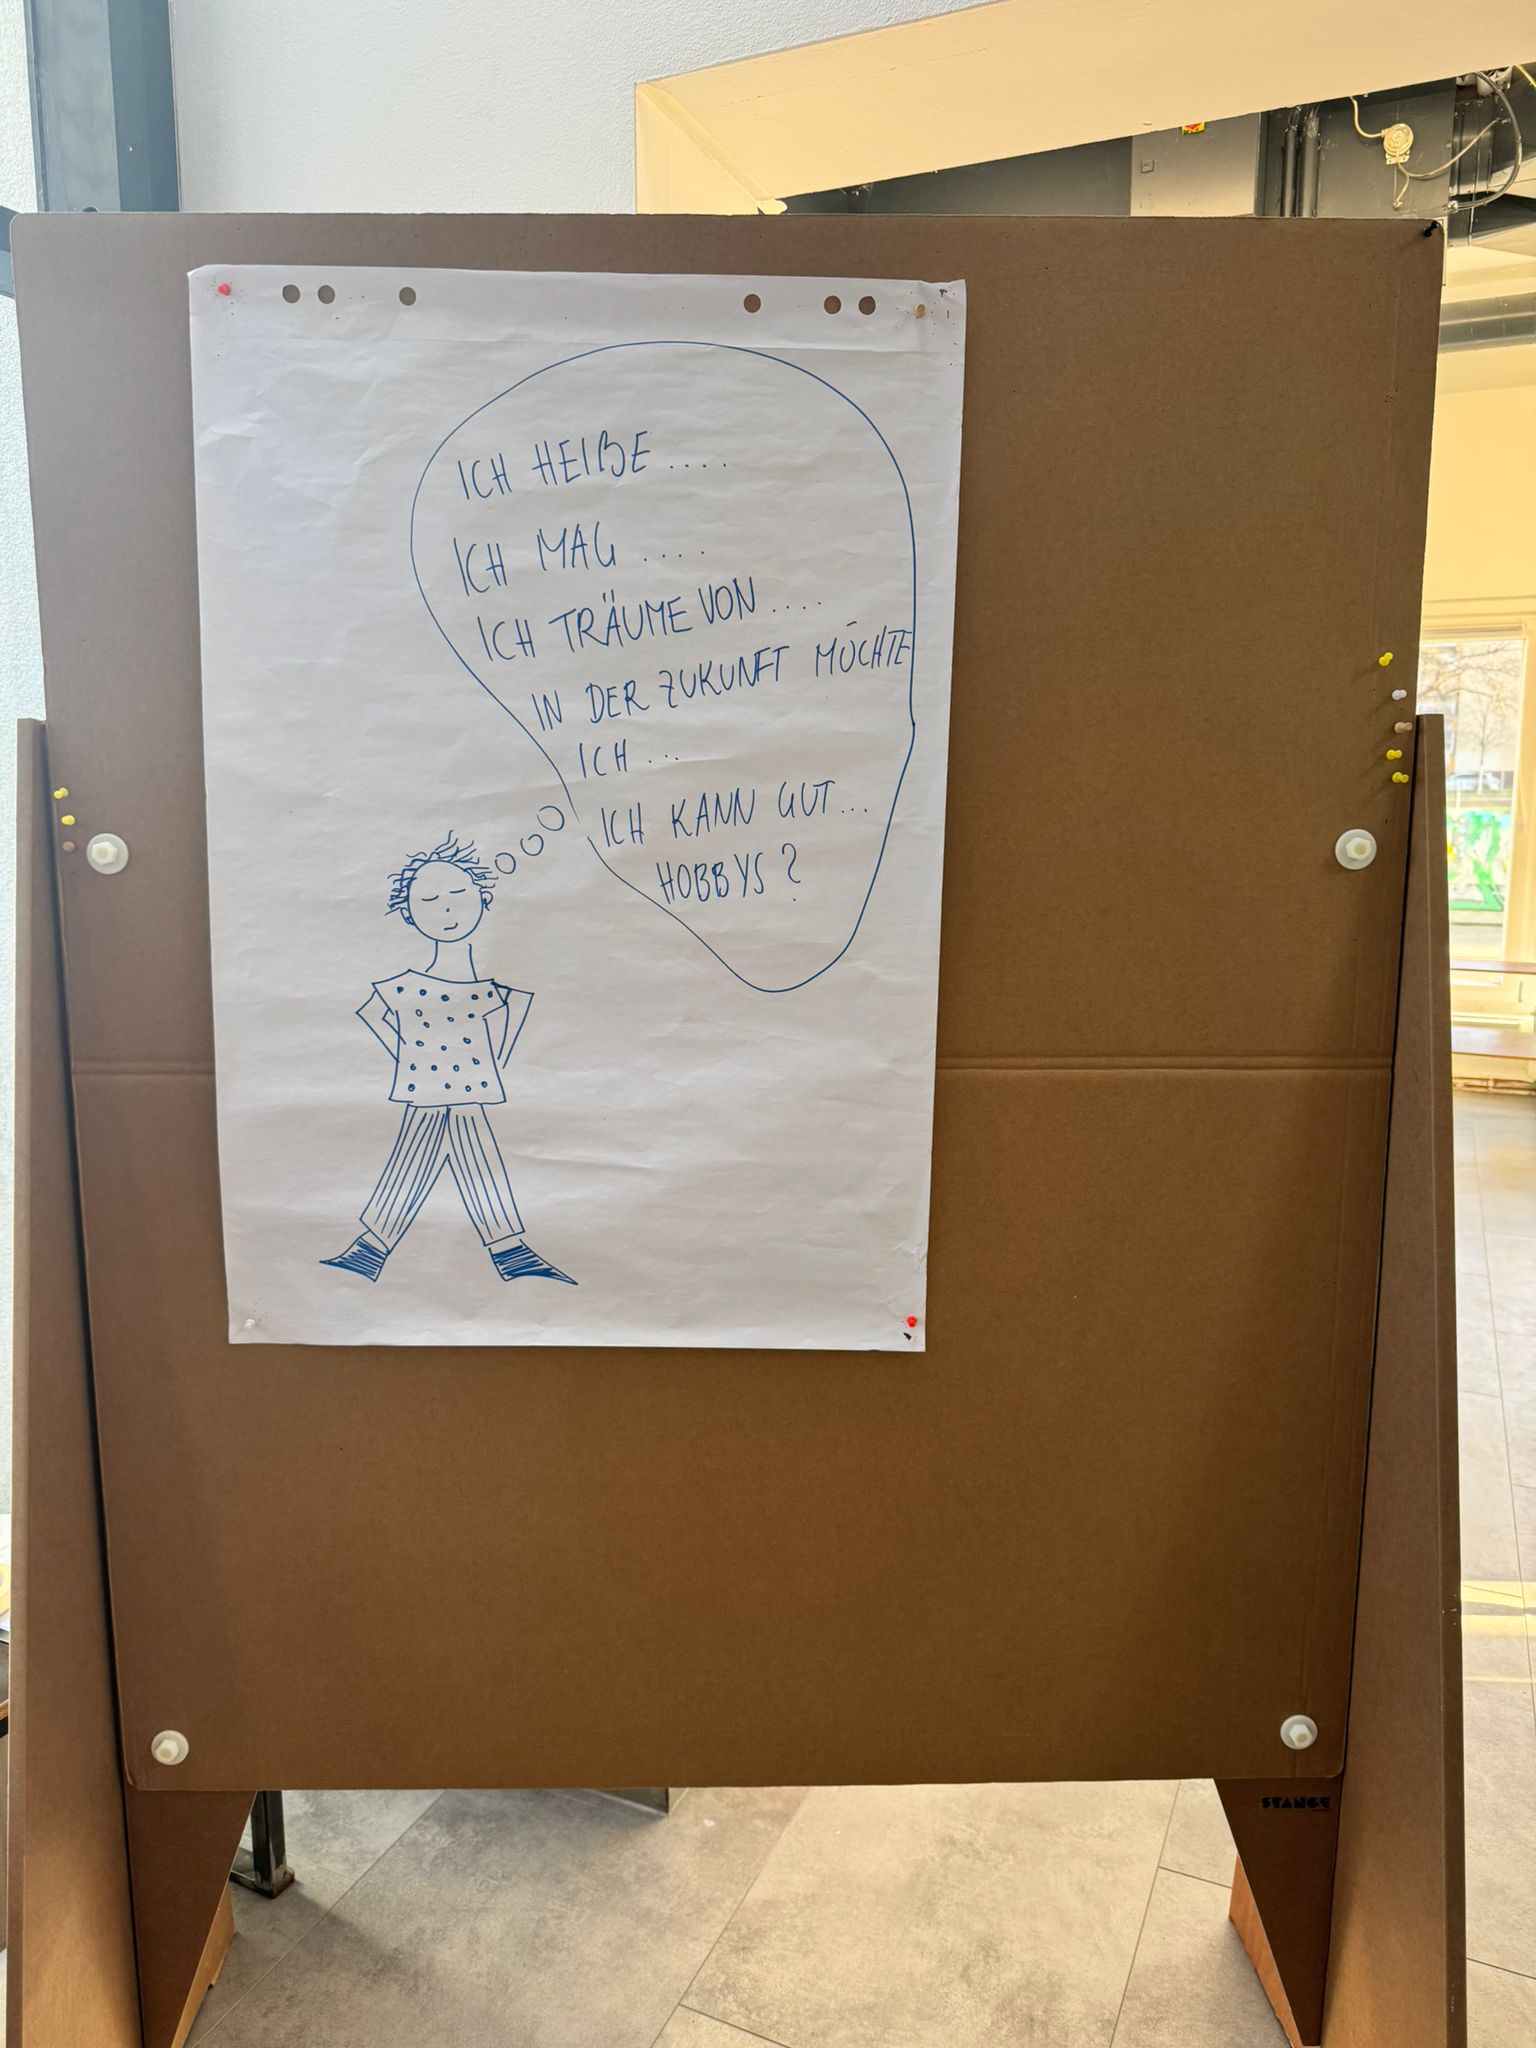 ICH HEIßE ....
ICH MAG ....
ICH TRÄUME VON ....
IN DER ZUKUNFT MÖCHTE
ICH ...
ICH KANN GUT...
HOBBYS ?
STANGE